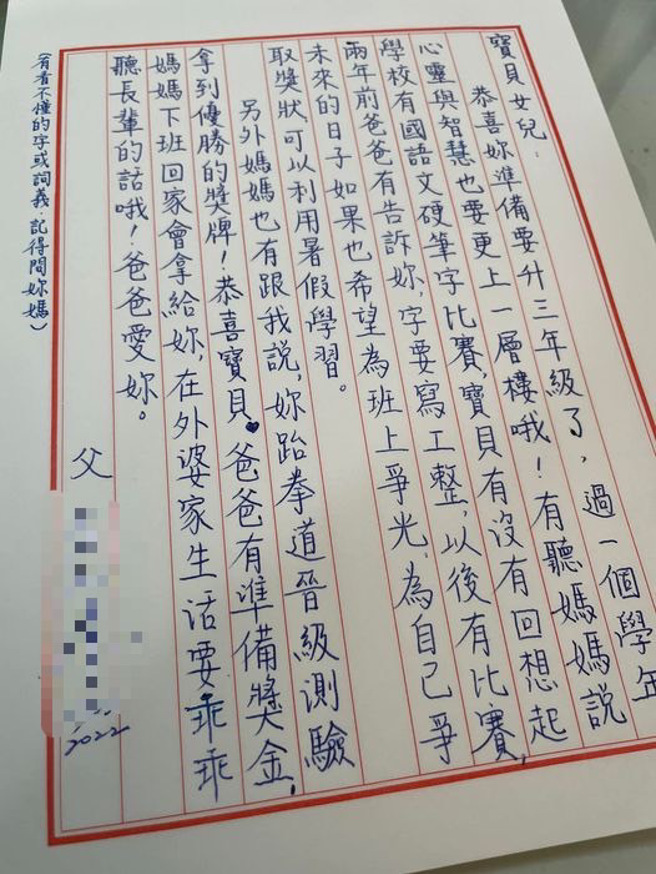 寶貝女兒：
恭喜妳準備要升三年級了，過一個學年
心靈與智慧也要更上一層樓哦！有聽媽媽說
學校有國語文硬筆字比賽，寶貝有沒有回想起
兩年前爸爸有告訴妳，字要寫工整，以後有比賽，
未來的日子如果也希望為班上爭光，為自己爭
取獎狀，可以利用暑假學習。
另外媽媽也有跟我說，妳跆拳道晉級測驗
拿到優勝的獎牌！恭喜寶貝♥爸爸有準備獎金，
媽媽下班回家會拿給妳，在外婆家生活要乖乖
聽長輩的話哦！爸爸愛妳。
父
2022
（有看不懂的字或詞義，記得問妳媽）